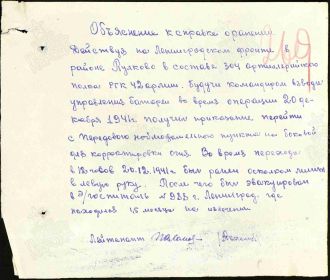 Объяснение к справке о ранении
269
Действуя на Ленинградском фронте в
районе Пулково в составе 304 артиллерийского
полка РГК 42 армии, будучи командиром взвода
управления батареи во время операции 20 де-
кабря 1941г. получил приказание перейти
с передового наблюдательного пункта на боковой
для корректировки огня. Во время перехода
в 12 часов 20.12.1941г. был ранен осколком мины
в левую руку. После чего был эвакуирован
в э/госпиталь № 988 г. Ленинград, где
находился 1,5 месяца на излечении.
Лейтенант